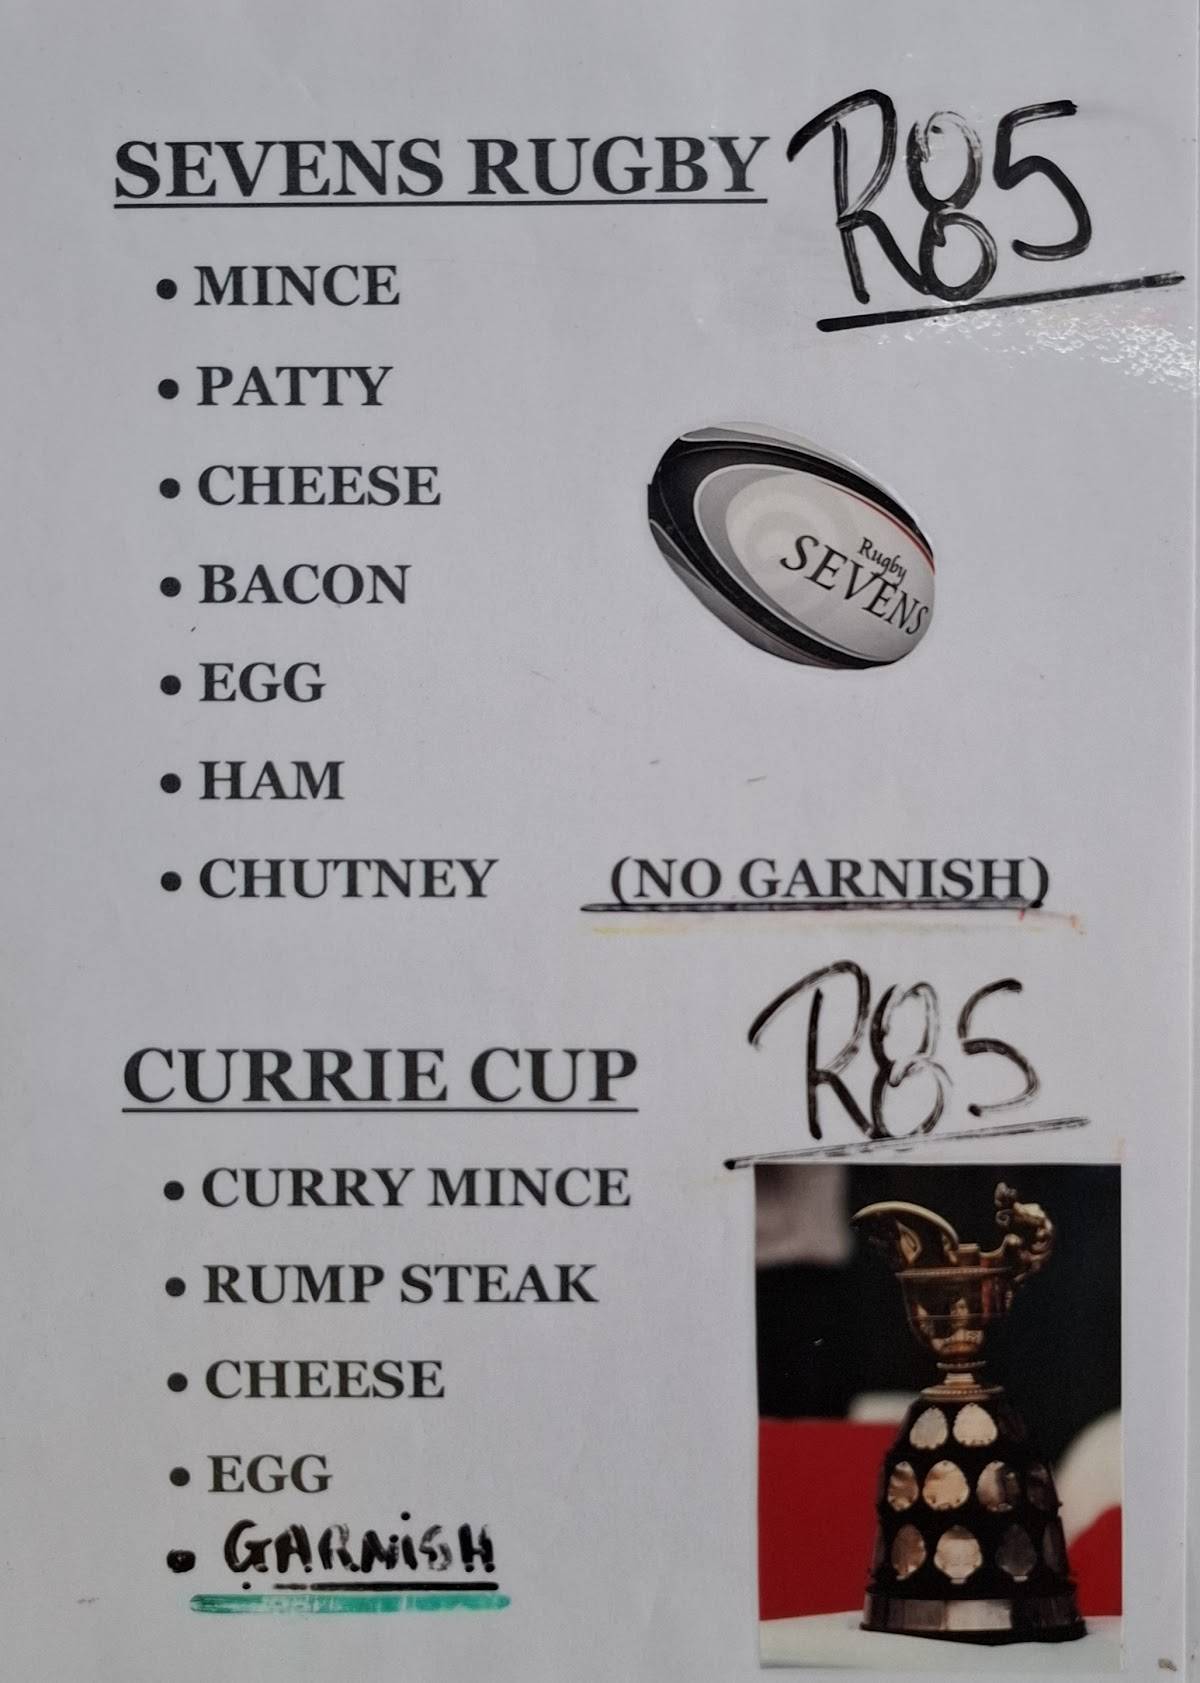 SEVENS RUGBY R85
• MINCE
• PATTY
• CHEESE
• BACON
• EGG
• HAM
• CHUTNEY (NO GARNISH)
Rugby
SEVENS
CURRIE CUP R85
• CURRY MINCE
• RUMP STEAK
• CHEESE
• EGG
• GARNiSH